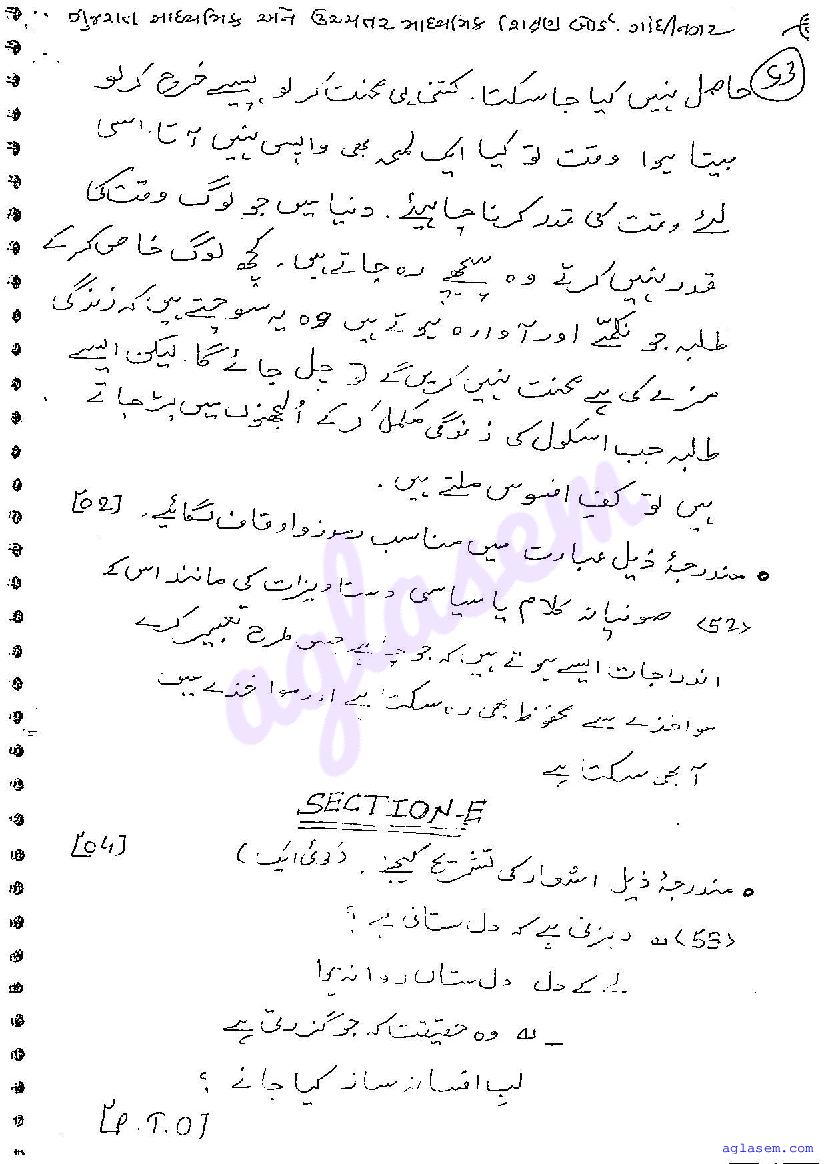 ગુજરાત માધ્યમિક અને ઉચ્ચતર માધ્યમિક શિક્ષણ બોર્ડ. ગાંધીનગર
53
حاصل نہیں کیا جا سکتا. کتنی ہی محنت کر لو پیسے خرچ کر لو
بیتا ہوا وقت تو کیا ایک لمحہ بھی واپس نہیں آتا. اسی
لئے وقت کی قدر کرنا چاہیئے. دنیا میں جو لوگ وقت کی
قدر نہیں کرتے وہ پیچھے رہ جاتے ہیں. کچھ لوگ خاص کر کے
طلبہ جو نکمّے اور آوارہ ہوتے ہیں وہ یہ سوچتے ہیں کہ زندگی
مزے کی ہے محنت نہیں کریں گے تو چل جائے گا. لیکن ایسے
طلبہ جب اسکول کی زندگی مکمل کر کے اُلجھنوں میں پڑ جاتے
ہیں تو کفِ افسوس ملتے ہیں.
• مندرجۂ ذیل عبارت میں مناسب رموز و اوقاف لگائیے. [02]
<52> صوفیانہ کلام یا سیاسی دستاویزات کی مانند اس کے
اندراجات ایسے ہوتے ہیں کہ جو چاہے جس طرح تعبیر کرے
مواخذے سے محفوظ بھی رہ سکتا ہے اور مواخذے میں
آ بھی سکتا ہے
SECTION-E
• مندرجۂ ذیل اشعار کی تشریح کیجئے. (کوئی ایک) [04]
<53> ؎ رہزنی ہے کہ دل ستانی ہے ؟
لے کے دل دل ستاں روانہ ہوا
؎ وہ حقیقت کہ جو گزرتی ہے
لبِ افسانہ ساز کیا جانے ؟
[P.T.O]
aglasem
aglasem.com